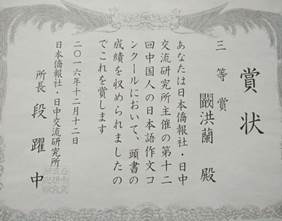 賞状
三等賞
闞洪蘭 殿
あなたは日本僑報社・日中
交流研究所主催の第十二
回中国人の日本語作文コ
ンクールにおいて、頭書の
成績を収められましたの
でこれを賞します
二〇一六年十二月十二日
日本僑報社・日中交流研究所
所長 段躍中